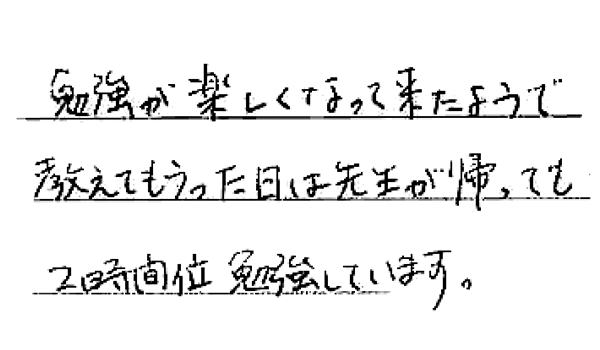 勉強が楽しくなって来たようで
教えてもらった日は先生が帰っても
2時間位勉強しています。